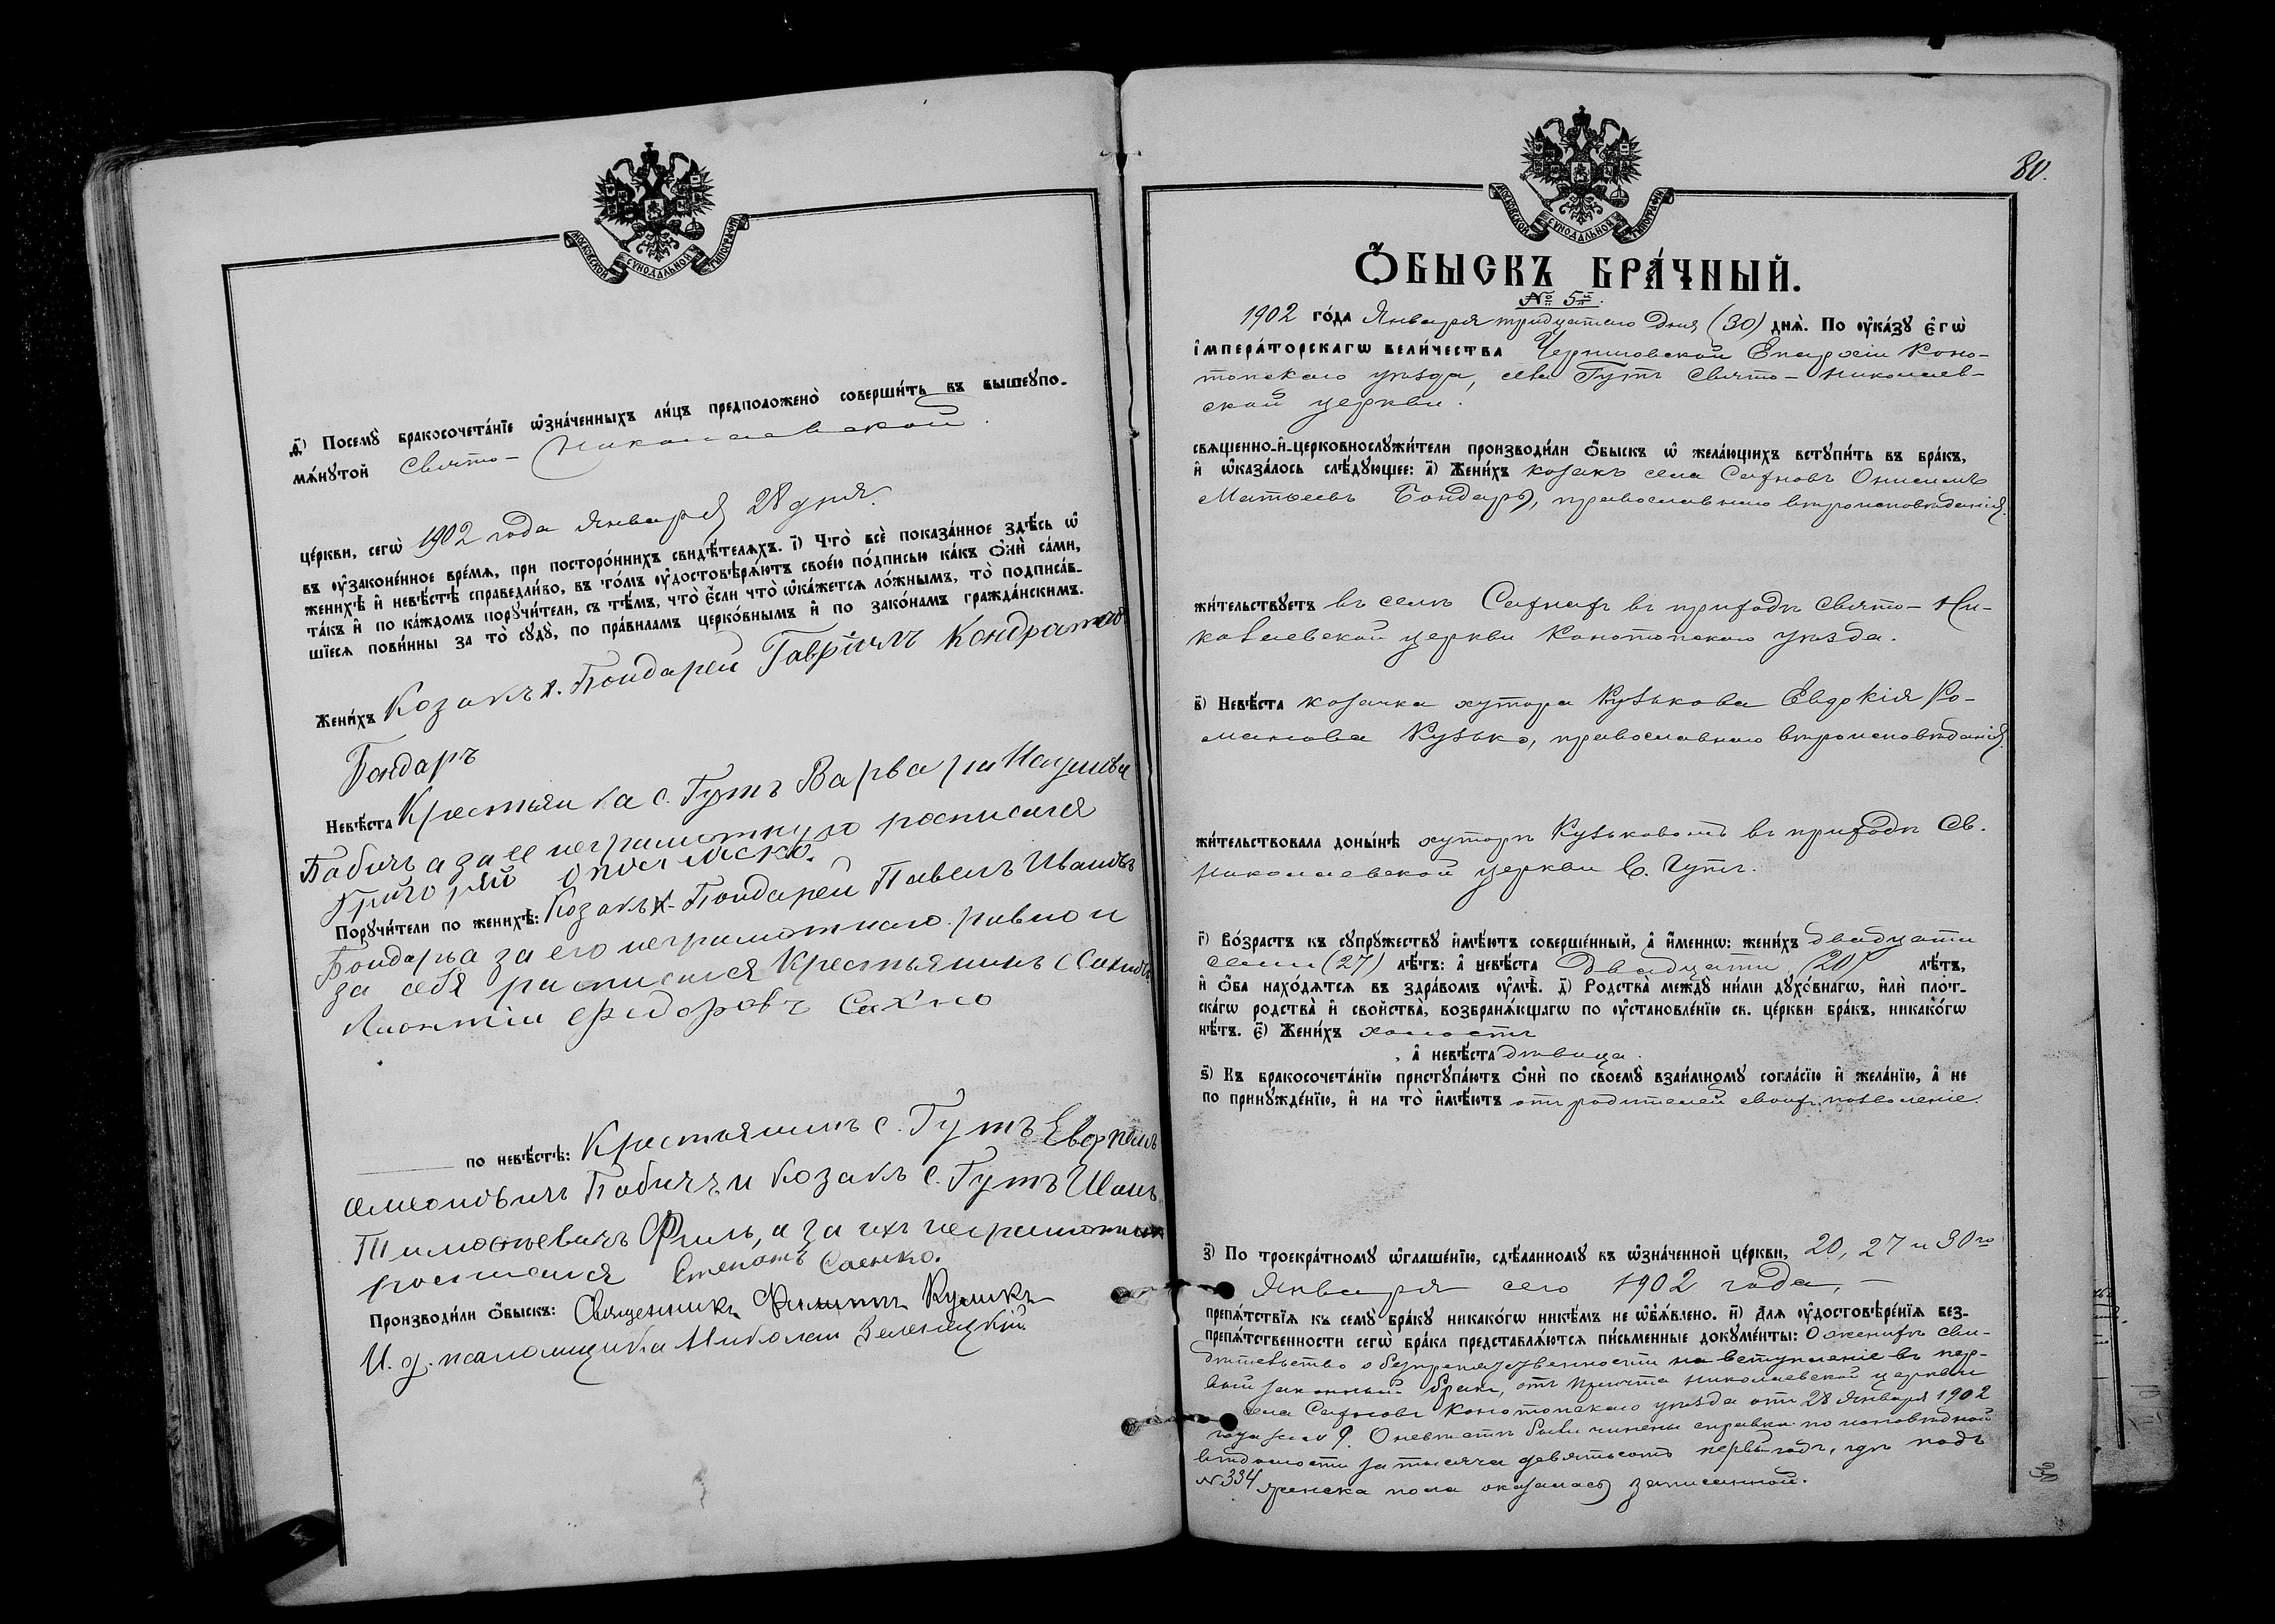 МОСКОВСКОЙ СѴНОДАЛЬНОЙ ТИПОГРАФІИ
д҃) Посемꙋ̀ бракосочета́нїе ѡ҆зна́ченныхъ ли́цъ предположено̀ соверши́ть въ вышеꙋпо-
мѧ́нꙋтой Свято-Николаевской
це́ркви, сегѡ̀ 1902 года Января 28 дня.
въ ᲂу҆зако́ненное вре́мѧ, при посторо́ннихъ свидѣ́телѧхъ. і҃) Что̀ всѐ пока́занное здѣ́сь ѡ҆
женихѣ̀ и҆ невѣ́стѣ справедли́во, въ то́мъ ᲂу҆достовѣрѧ́ютъ свое́ю по́дписью ка́къ ѻ҆нѝ са́ми,
та́къ и҆ по ка́ждомъ порꙋчи́тели, съ тѣ́мъ, что̀ є҆́сли что̀ ѡ҆ка́жетсѧ ло́жнымъ, то̀ подписа́в-
шїесѧ пови́нны за то̀ сꙋдꙋ̀, по пра́виламъ церко́внымъ и҆ по зако́намъ гражда́нскимъ.
Жени́хъ Козакъ х. Бондарей Гавріилъ Кондратов
Бондаръ
Невѣ́ста Крестьянка с. Гутъ Варвара Наумова
Бабичъ а за ее неграмотную росписался
Григорій
Порꙋчи́тели по женихѣ̀: Козакъ х. Бондарей Павелъ Ивановъ
Бондарь а за его неграмотнаго равно и
за себя расписался Крестьянинъ с Сахновъ
Леонтій Федоровъ Сахно
по невѣ́стѣ: Крестьянинъ с. Гутъ
Бабичъ и козакъ с. Гутъ Иванъ
Тимофеевичъ Филь, а за ихъ неграмотныхъ
росписался Степанъ Саенко.
Производи́ли ѻ҆́быскъ: Священникъ Филиппъ Куликъ
И. д. псаломщика Николай Зеленецкій
80.
МОСКОВСКОЙ СѴНОДАЛЬНОЙ ТИПОГРАФІИ
Ѻ҆́БЫСКЪ БРА́ЧНЫЙ.
№ 5й.
1902 го́да Января тридцатаго дня (30) днѧ̀. По ᲂу҆ка́зꙋ є҆гѡ̀
і҆мпера́торскагѡ вели́чества Черниговской Епархіи Коно-
топскаго уѣзда, села Гутъ Свято-Николаев-
ской церкви.
свѧщенно-и҆-церковнослꙋжи́тели производи́ли ѻ҆́быскъ ѡ҆ жела́ющихъ встꙋпи́ть въ бра́къ,
и҆ ѡ҆каза́лось слѣ́дꙋющее: а҃) Жени́хъ козакъ села Сахновъ Онисимъ
Матѳеевъ Бондарь, православнаго вѣроисповѣданія.
жи́тельствꙋетъ въ селѣ Сахнахъ въ приходѣ Свято-Ни-
колаевской церкви Конотопскаго уѣзда.
в҃) Невѣ́ста козачка хутора Кузькова Евдокія Ро-
манова Кузько, православнаго вѣроисповѣданія.
жи́тельствовала доны́нѣ хуторѣ Кузьковомъ въ приходѣ Св.
Николаевской церкви С. Гутъ.
г҃) Во́зрастъ къ сꙋпрꙋ́жествꙋ и҆мѣ́ютъ соверше́нный, а҆ и҆́меннѡ: жени́хъ двадцати
семи (27) лѣ́тъ: а҆ невѣ́ста двадцати (20) лѣ́тъ,
и҆ ѻ҆́ба нахо́дѧтсѧ въ здра́вомъ ᲂу҆мѣ̀. д҃) Родства̀ междꙋ̀ ни́ми дꙋхо́внагѡ, и҆лѝ пло́т-
ска́гѡ родства̀ и҆ сво́йства̀, возбранѧ́ющагѡ по ᲂу҆становле́нїю св. це́ркви бра́къ, никако́гѡ
нѣ́тъ. є҃) Жени́хъ холостъ
, а҆ невѣ́ста дѣвица.
ѕ҃) Къ бракосочета́нїю пристꙋпа́ютъ ѻ҆нѝ по своемꙋ̀ взаи́мномꙋ согла́сїю и҆ жела́нїю, а҆ не
по принꙋжде́нїю, и҆ на то̀ и҆мѣ́ютъ отъ родителей своихъ позволеніе.
з҃) По троекра́тномꙋ ѡ҆глаше́нїю, сдѣ́ланномꙋ въ ѡ҆зна́ченной це́ркви, 20, 27 и 30го
Января сего 1902 года, —
препѧ́тствїѧ къ семꙋ бра́кꙋ никако́гѡ никѣ́мъ не ѡ҆б̾ѧ́влено. и҃) Длѧ ᲂу҆достовѣре́нїѧ без-
препѧ́тственности сегѡ̀ бра́ка представлѧ́ютсѧ пи́сьменные докꙋме́нты: О женихѣ сви-
дѣтельство о безпрепятственности на вступленіе въ пер-
вый законный бракъ, отъ причта Николаевской церкви
села Сахновъ Конотопскаго уѣзда отъ 28 Января 1902
года за № 9. О невѣстѣ была чинена справка по исповѣдной
вѣдомости за тысяча девятьсотъ первый годъ, гдѣ подъ
№ 334 женска пола оказалась записанной.